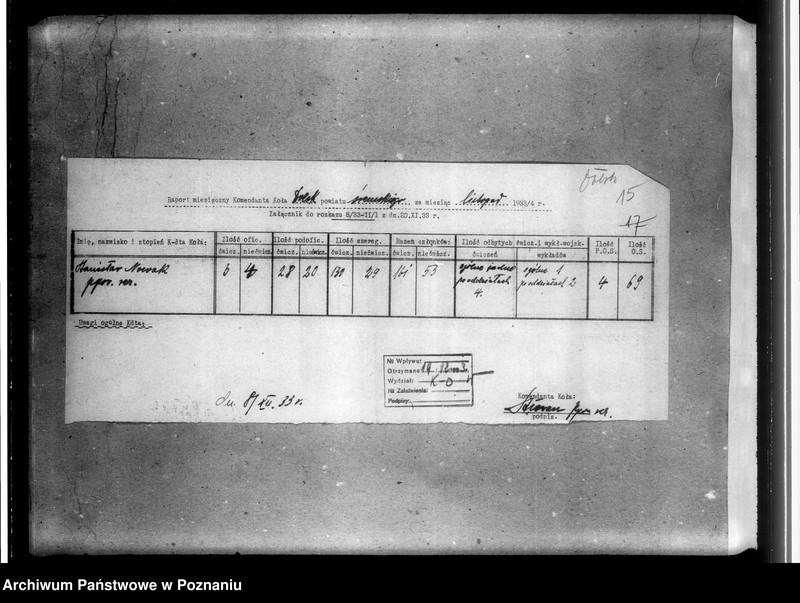 Dolsk
15
17
Raport miesięczny Komendanta Koła Dolsk powiatu śremskiego za miesiąc listopad 1933/4 r.
Załącznik do rozkazu 8/33-II/1 z dn.20.XI.33 r.
Imię, nazwisko i stopień K-dta Koła: Ilość ofic. Ilość podofic. Ilość szereg. Razem członków: Ilość odbytych ćwicz.i wykł.wojsk. Ilość P.O.S. Ilość O.S.
ćwicz. niećwicz. ćwicz. niećwicz. ćwicz. niećwicz. ćwicz. niećwicz. ćwiczeń wykładów
Stanisław Nowak 6 4 28 20 29 53 ogólne 1 4 69
ppor. rez. pododdziałach 4. pododdziałach 2
Uwagi ogólne Kdta:
Nr Wpływu:
Otrzymano 19. 12. 1933
Wydział: K-O
Nr Załatwienia:
Podpisy:
Dn. 8/XII. 33 r.
Komendanta Koła:
Nowak ppor. rez.
podpis.
Archiwum Państwowe w Poznaniu